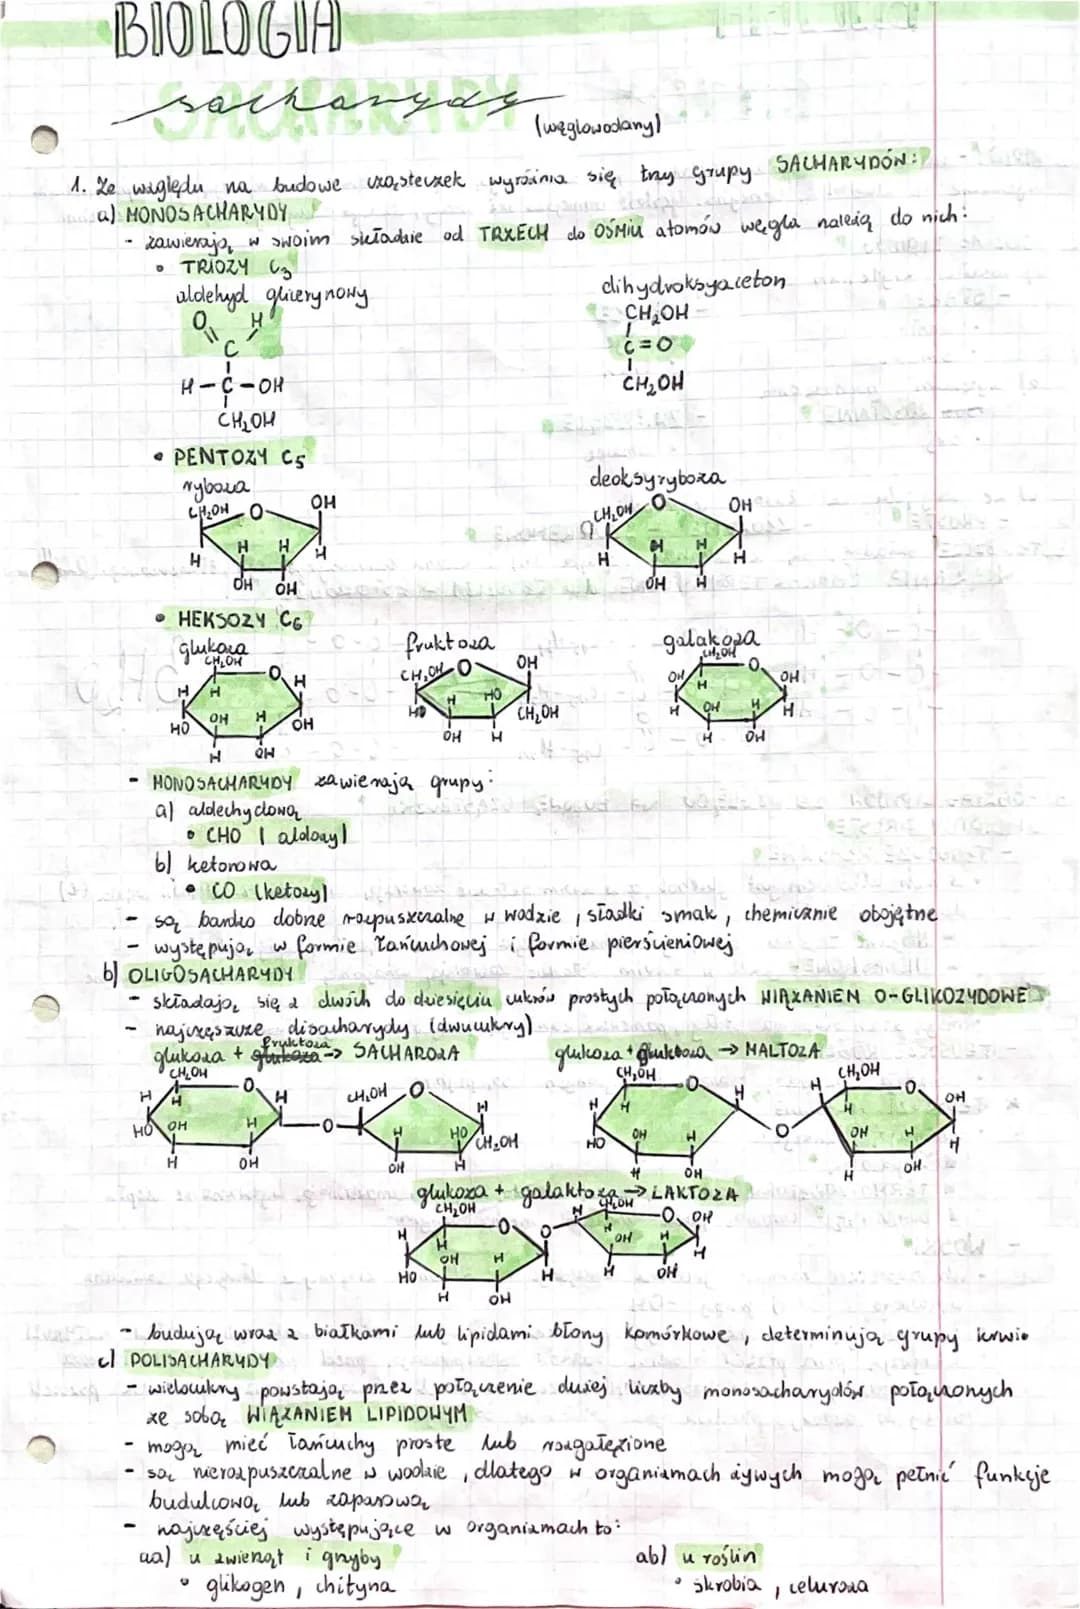 BIOLOGIA
sacharydy
(węglowodany)
1. Ze względu na budowe cząsteczek wyróżnia się trzy grupy SACHARYDÓW:
a) MONOSACHARYDY
- zawierają w swoim składzie od TRZECH do OŚMIU atomów węgla należą do nich:
• TRIOZY C3
aldehyd glicerynowy dihydroksyaceton
O H CH2OH
C C=O
H-C-OH CH2OH
CH2OH
• PENTOZY C5
ryboza deoksyryboza
CH2OH O OH CH2OH O OH
H H H H H H H H
OH OH OH H
• HEKSOZY C6
glukoza fruktoza galakoza
CH2OH O H CH2OH O OH CH2OH O OH
H H OH H HO OH HO H HO CH2OH OH H OH H H H
H OH OH H H OH
- MONOSACHARYDY zawierają grupy:
a) aldechydową
• CHO (aldozy)
b) ketonowa
• CO (ketozy)
- są bardzo dobrze rozpuszczalne w wodzie, słodki smak, chemicznie obojętne
- występują w formie łańcuchowej i formie pierścieniowej
b) OLIGOSACHARYDY
- składają się z dwóch do dziesięciu cukrów prostych połączonych WIĄZANIEM O-GLIKOZYDOWE
- najczęszcze disacharydy (dwucukry)
glukoza + fruktoza -> SACHAROZA glukoza + -> MALTOZA
CH2OH O H CH2OH O H CH2OH O H CH2OH O OH
H H HO OH H O H HO CH2OH H H HO OH H O H H OH H H
H OH OH H H OH H OH
glukoza + galaktoza -> LAKTOZA
CH2OH O O H CH2OH O OH
H H OH H HO H H OH H H
H OH H OH
- budują wraz z białkami lub lipidami błony komórkowe, determinują grupy krwi
c) POLISACHARYDY
- wielocukry powstają przez połączenie dużej liczby monosacharydów połączonych
ze sobą WIĄZANIEM LIPIDOWYM
- mogą mieć łańcuchy proste lub rozgałęzione
- są nierozpuszczalne w wodzie, dlatego w organizmach żywych mogą pełnić funkcje
budulcową lub zapasową
- najczęściej występujące w organizmach to:
aa) u zwierząt i grzyby ab) u roślin
• glikogen, chityna • skrobia, celuroza